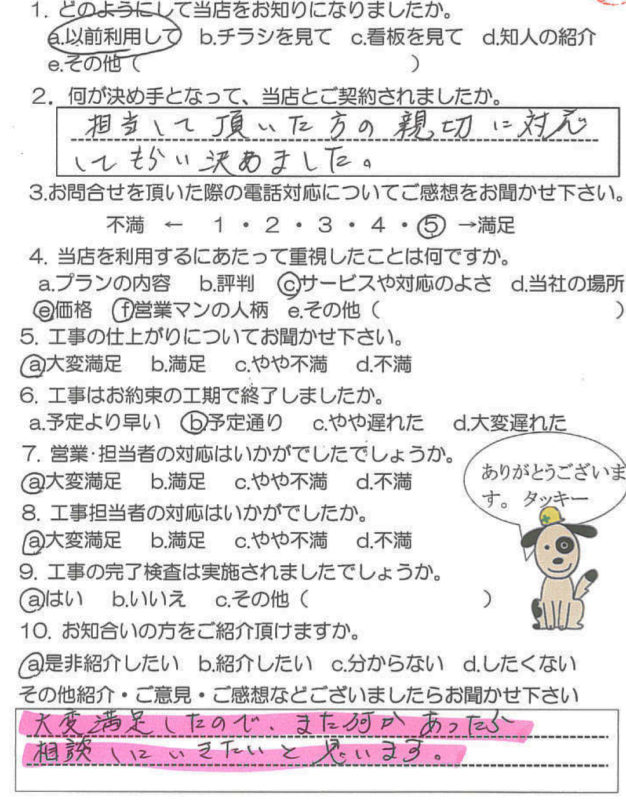 1. どのようにして当店をお知りになりましたか。
a.以前利用して b.チラシを見て c.看板を見て d.知人の紹介
e.その他( )
2. 何が決め手となって、当店とご契約されましたか。
担当して頂いた方の親切に対応
してもらい決めました。
3.お問合せを頂いた際の電話対応についてご感想をお聞かせ下さい。
不満 ← 1・2・3・4・⑤ →満足
4. 当店を利用するにあたって重視したことは何ですか。
a.プランの内容 b.評判 ⓒサービスや対応のよさ d.当社の場所
ⓔ価格 ⓕ営業マンの人柄 e.その他( )
5. 工事の仕上がりについてお聞かせ下さい。
ⓐ大変満足 b.満足 c.やや不満 d.不満
6. 工事はお約束の工期で終了しましたか。
a.予定より早い ⓑ予定通り c.やや遅れた d.大変遅れた
7. 営業・担当者の対応はいかがでしたでしょうか。
ⓐ大変満足 b.満足 c.やや不満 d.不満
ありがとうございま
す。 タッキー
8. 工事担当者の対応はいかがでしたか。
ⓐ大変満足 b.満足 c.やや不満 d.不満
9. 工事の完了検査は実施されましたでしょうか。
ⓐはい b.いいえ c.その他( )
10. お知合いの方をご紹介頂けますか。
ⓐ是非紹介したい b.紹介したい c.分からない d.したくない
その他紹介・ご意見・ご感想などございましたらお聞かせ下さい
大変満足したので、また何かあったら
相談しにいきたいと思います。